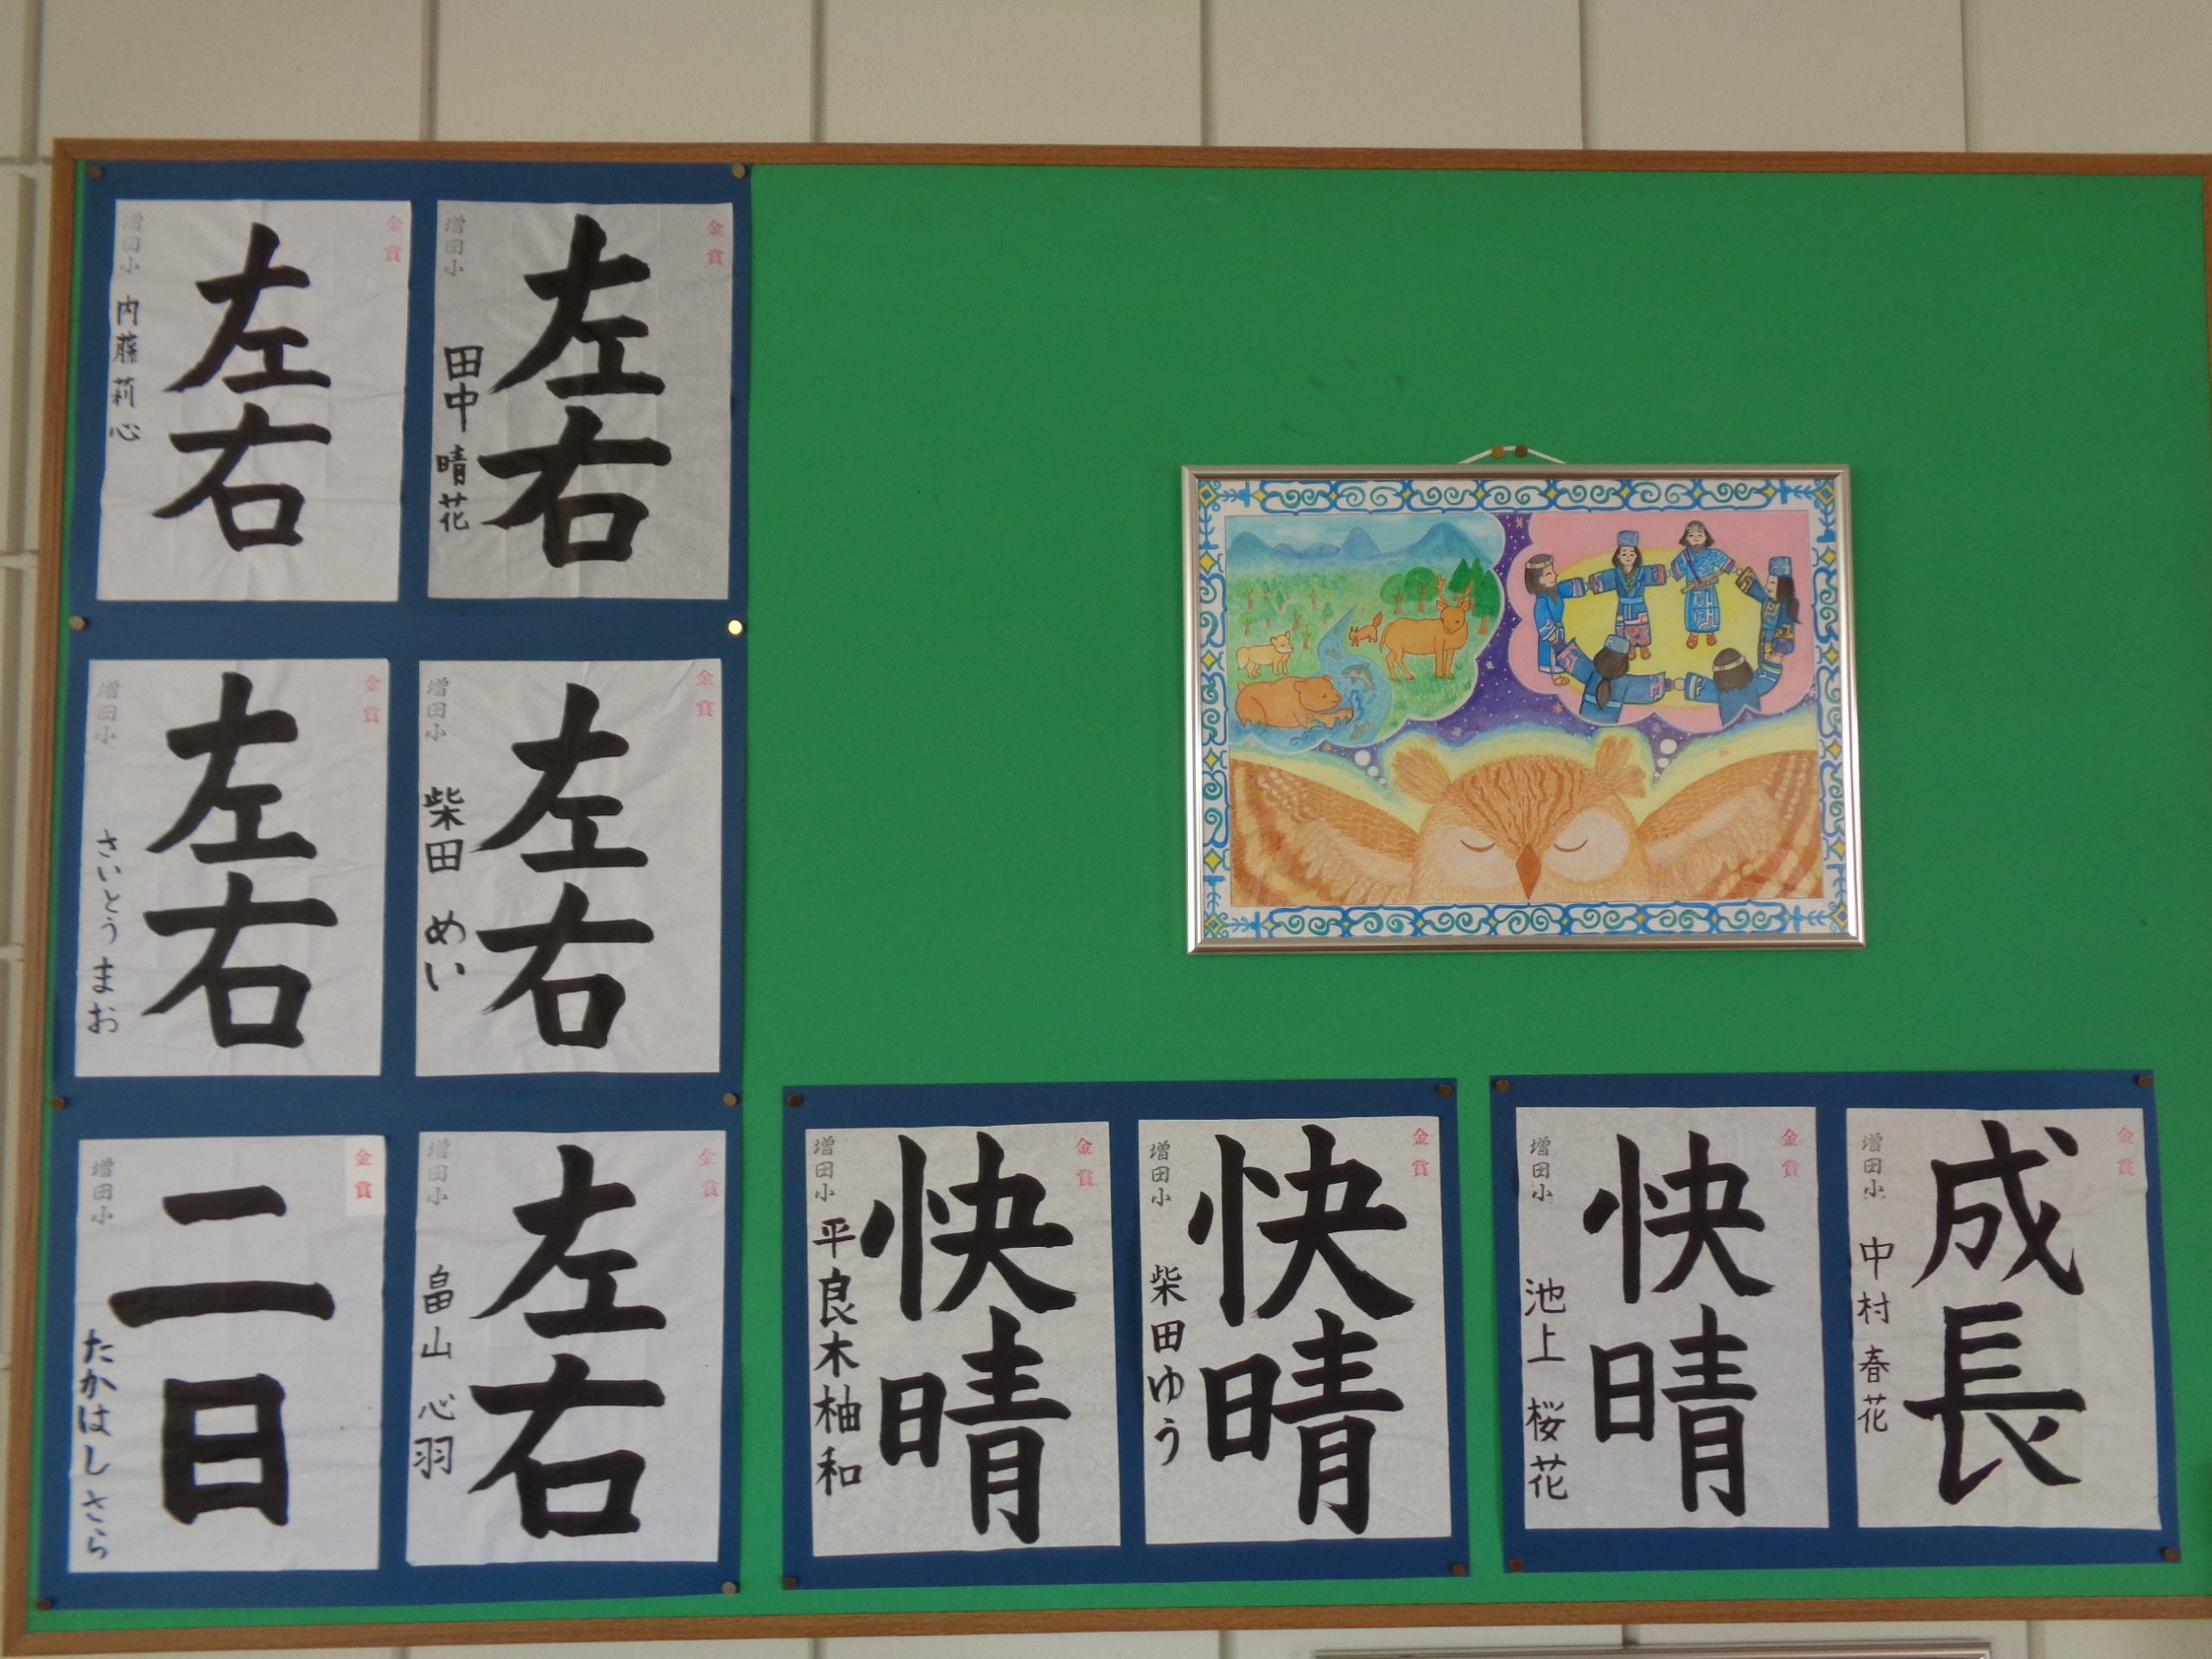 金賞
左右
増田小
田中晴花
金賞
左右
増田小
内藤莉心
金賞
左右
増田小
柴田 めい
金賞
左右
増田小
さいとう まお
金賞
左右
増田小
畠山 心羽
金賞
二日
増田小
たかはし さら
金賞
成長
増田小
中村 春花
金賞
快晴
増田小
池上 桜花
金賞
快晴
増田小
柴田ゆう
金賞
快晴
増田小
平良木柚和